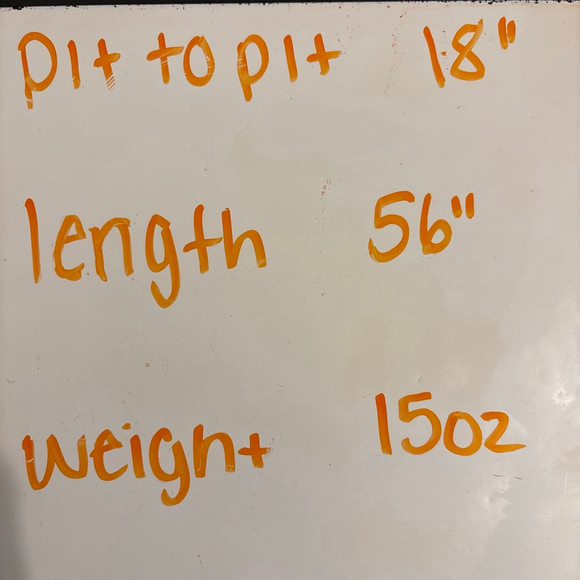 pit to pit 18"
length 56"
weight 15oz